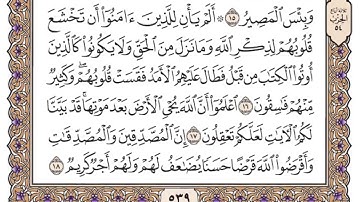 وَبِئْسَ الْمَصِيرُ ١٥ ۞ أَلَمْ يَأْنِ لِلَّذِينَ ءَامَنُوٓا۟ أَن تَخْشَعَ
قُلُوبُهُمْ لِذِكْرِ اللَّهِ وَمَا نَزَلَ مِنَ الْحَقِّ وَلَا يَكُونُوا۟ كَالَّذِينَ
أُوتُوا۟ الْكِتَٰبَ مِن قَبْلُ فَطَالَ عَلَيْهِمُ الْأَمَدُ فَقَسَتْ قُلُوبُهُمْ ۖ وَكَثِيرٌ
مِّنْهُمْ فَٰسِقُونَ ١٦ اعْلَمُوٓا۟ أَنَّ اللَّهَ يُحْىِ الْأَرْضَ بَعْدَ مَوْتِهَا ۚ قَدْ بَيَّنَّا
لَكُمُ الْءَايَٰتِ لَعَلَّكُمْ تَعْقِلُونَ ١٧ إِنَّ الْمُصَّدِّقِينَ وَالْمُصَّدِّقَٰتِ
وَأَقْرَضُوا۟ اللَّهَ قَرْضًا حَسَنًا يُضَٰعَفُ لَهُمْ وَلَهُمْ أَجْرٌ كَرِيمٌ ١٨
٥٣٩
الحزب
٥٤